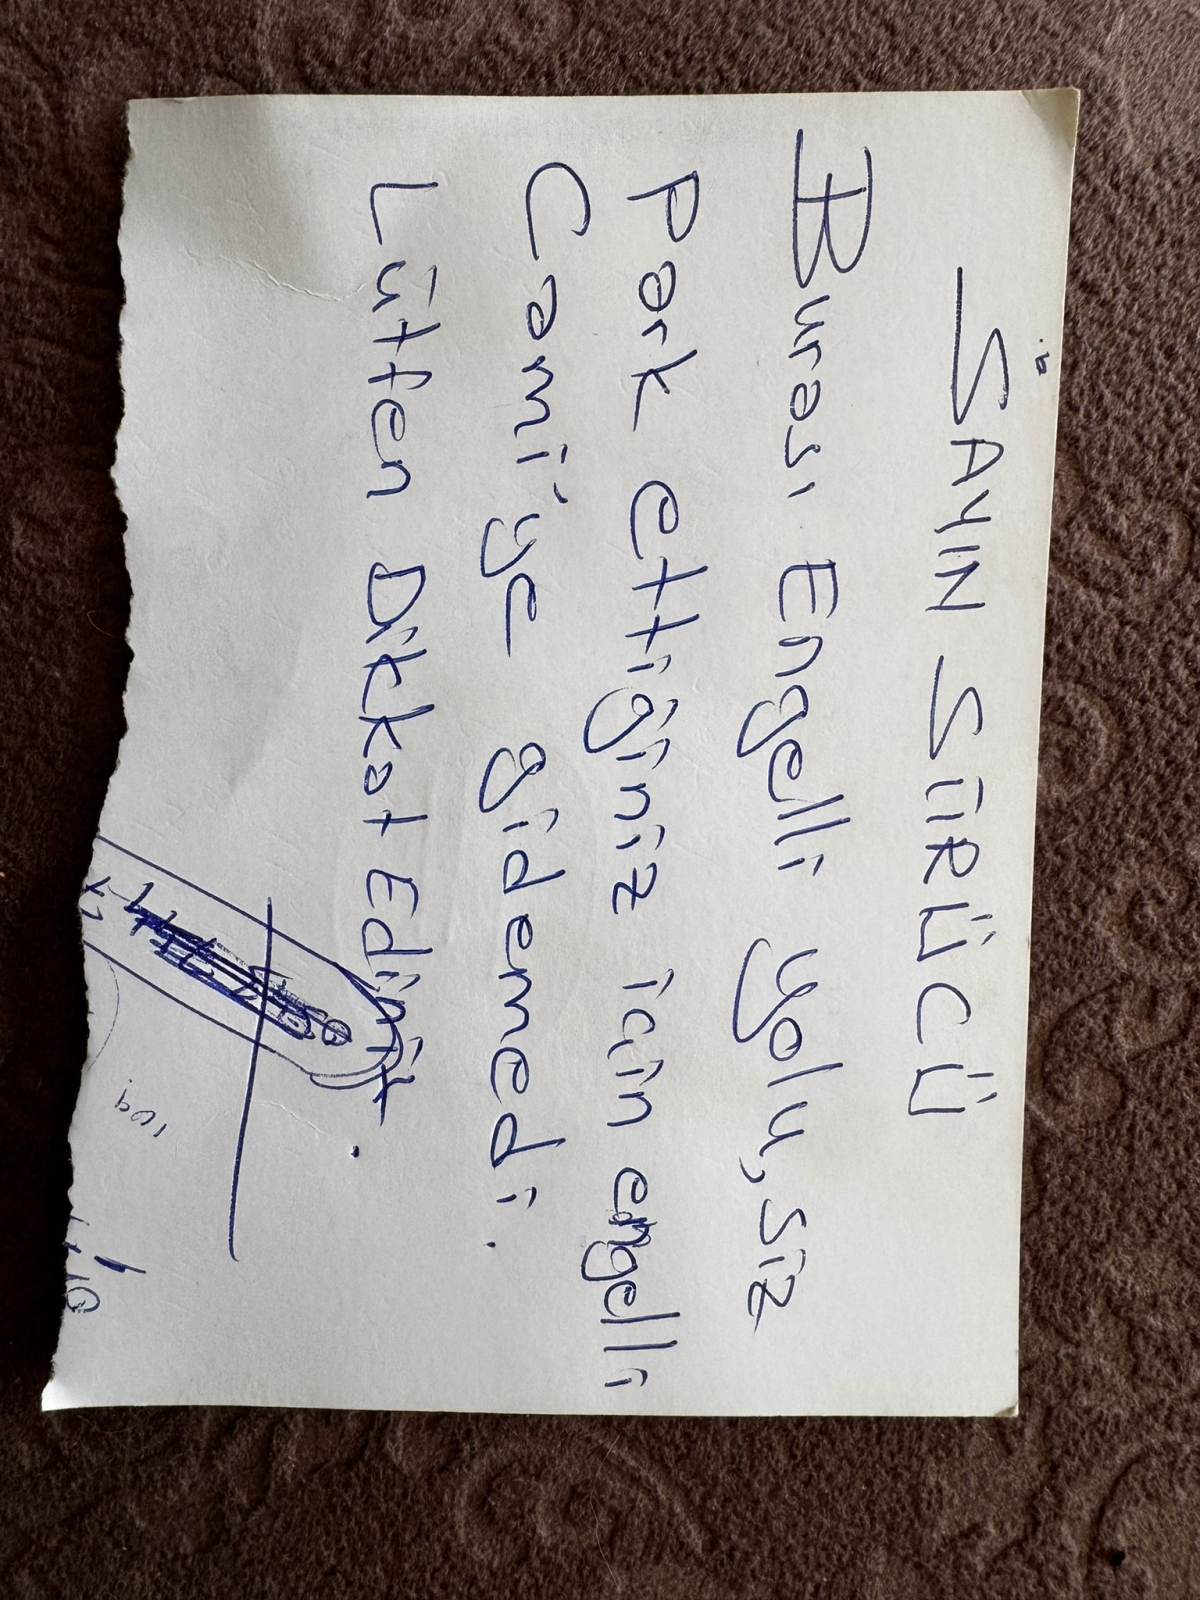 SAYIN SÜRÜCÜ
Burası Engelli yolu, siz
Park ettiğiniz için engelli
Cami'ye gidemedi.
Lütfen Dikkat Edin.